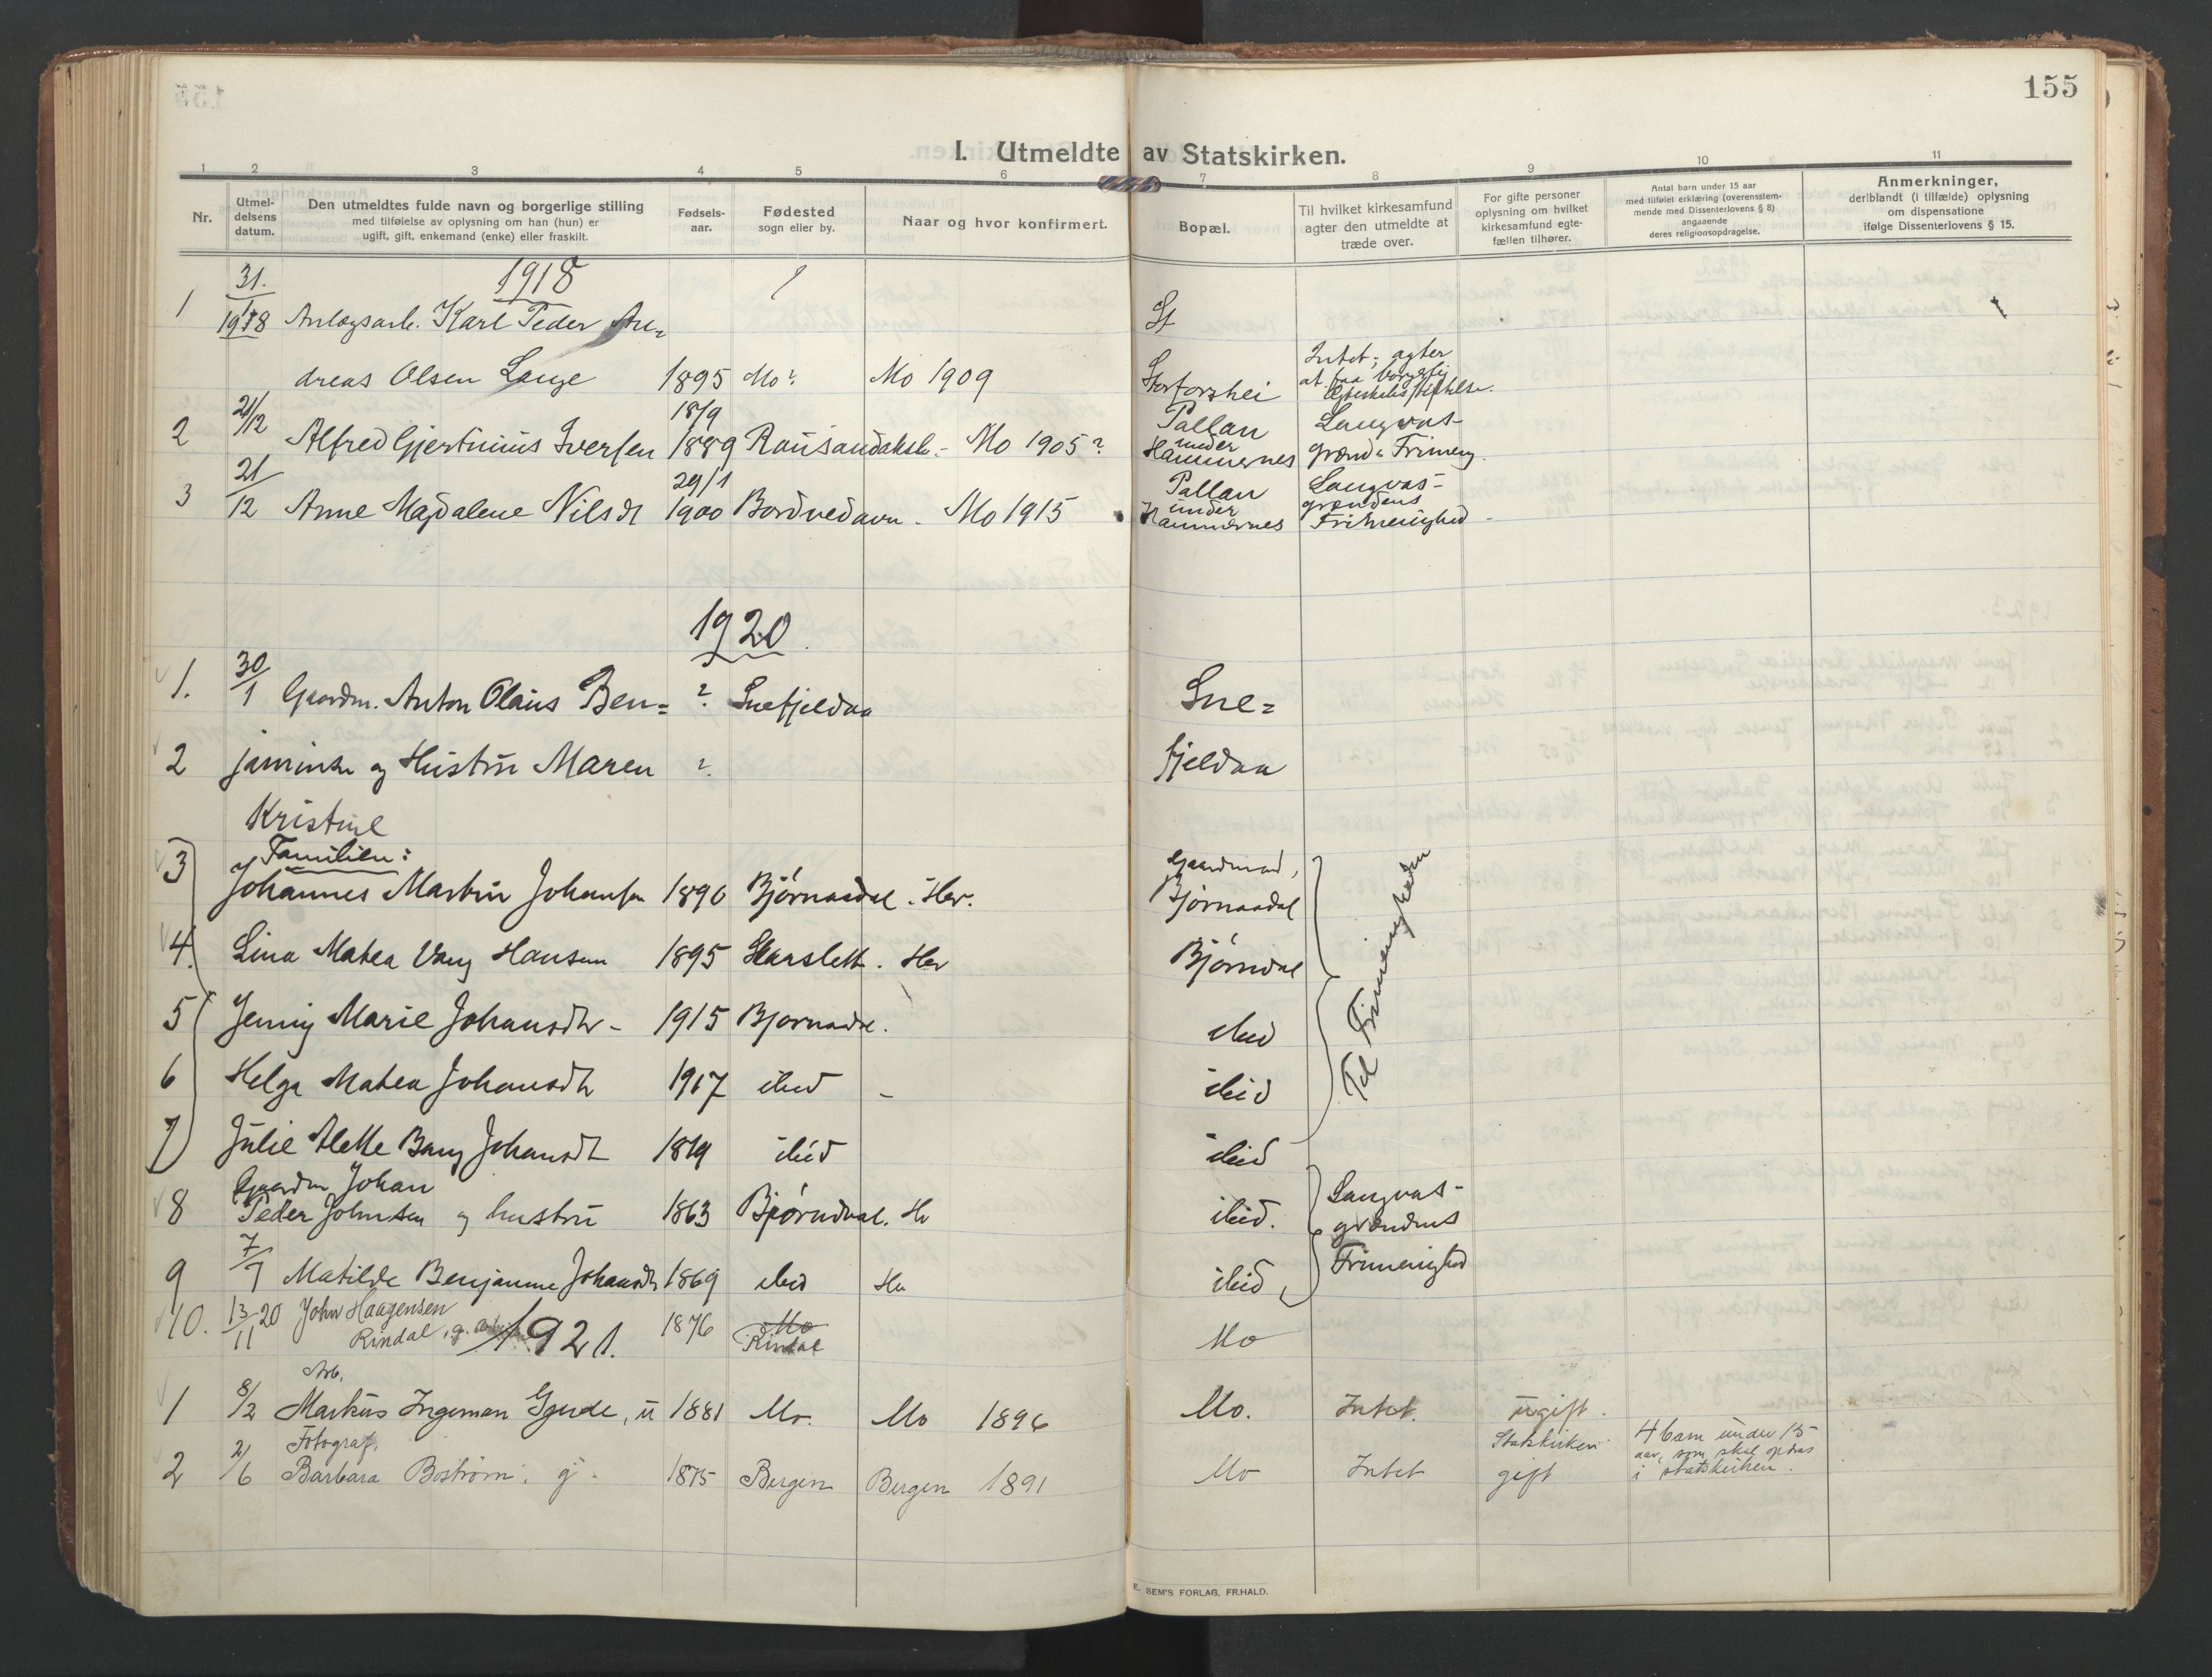 155
I. Utmeldte av Statskirken.
1 2 3 4 5 6 7 8 9 10 11
Nr.
Utmeldelsens datum.
Den utmeldtes fulde navn og borgerlige stilling
med tilføielse av oplysning om han (hun) er
ugift, gift, enkemand (enke) eller fraskilt.
Fødselsaar.
Fødested
sogn eller by.
Naar og hvor konfirmert.
Bopæl.
Til hvilket kirkesamfund
agter den utmeldte at
træde over.
For gifte personer
oplysning om hvilket
kirkesamfund egtefællen tilhører.
Antal barn under 15 aar
med tilføiet erklæring (overensstemmende med Dissenterlovens § 8)
angaaende
deres religionsopdragelse.
Anmerkninger,
deriblandt (i tilfælde) oplysning
om dispensatione
ifølge Dissenterlovens § 15.
1918
1 31/1 1918 Anlægsarb. Karl Peder An=
dreas Olsen Lange 1895 Mo? Mo 1909 Storforshei Intet; agter at faa borgerlig
2 21/12 Alfred Gjertinius Iversen 18/9 1889 Mo 1905? Pallan under Hammernes Langvas-grend. Frimenig.
3 21/12 Anne Magdalene Nilsdt 29/1 1900 Bordvedavn. Mo 1915 Pallan under Hammernes Langvas-grendens Frimenighed
1920
1. 30/1 Gaardm. Anton Olaus Ben= ? Snefjeldaa Sne=
2 jaminsen og Hustru Maren ? fjeldaa
Kristine
Familien:
3 Johannes Martin Johansen 1890 Bjørnaadal. Hev. Gaardmand, Bjørnaadal
4. Lina Matea Vang Hansen 1895 Hev Bjørndal
Til Frimenigheden
5 Jenny Marie Johansdtr - 1915 Bjornadal. ibid
6 Helga Matea Johansdtr 1917 ibid - ibid
7 Julie Alette Bang Johansdt 1819 ibid ibid
8 Gaardm Johan
Peder Johnsen og hustru 1863 ibid. Langvas-
grendens
9 7/7 Matilde Johansdtr 1869 ibid ibid Frimenighed
10. 13/11 20 John Haagensen
Rindal, g. 1876 Mo Rindal Mo
1921.
1 8/2 Arb.
Markus Ingeman u 1881 Mo. Mo 1896 Mo. Intet. ugift.
2 2/6 Fotograf,
Barbara Boström, g. 1875 Bergen Bergen 1891 Mo Intet Statskirken gift 4 barn under 15
aar, som skal opdras
i statskirken.
E. SEM'S FORLAG, FR.HALD.